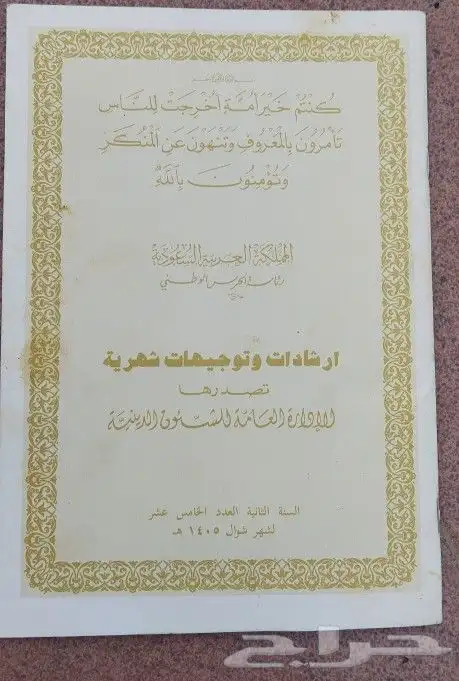 كُنتُمْ خَيْرَ أُمَّةٍ أُخْرِجَتْ لِلنَّاسِ
تَأْمُرُونَ بِالْمَعْرُوفِ وَتَنْهَوْنَ عَنِ الْمُنْكَرِ
وَتُؤْمِنُونَ بِاللَّهِ
المملكة العربية السعودية
رئاسة الحرس الوطني
ارشادات وتوجيهات شهرية
تصدرها
الإدارة العامة للشئون الدينية
السنة الثانية العدد الخامس عشر
لشهر شوال ١٤٠٥ هـ
حراج